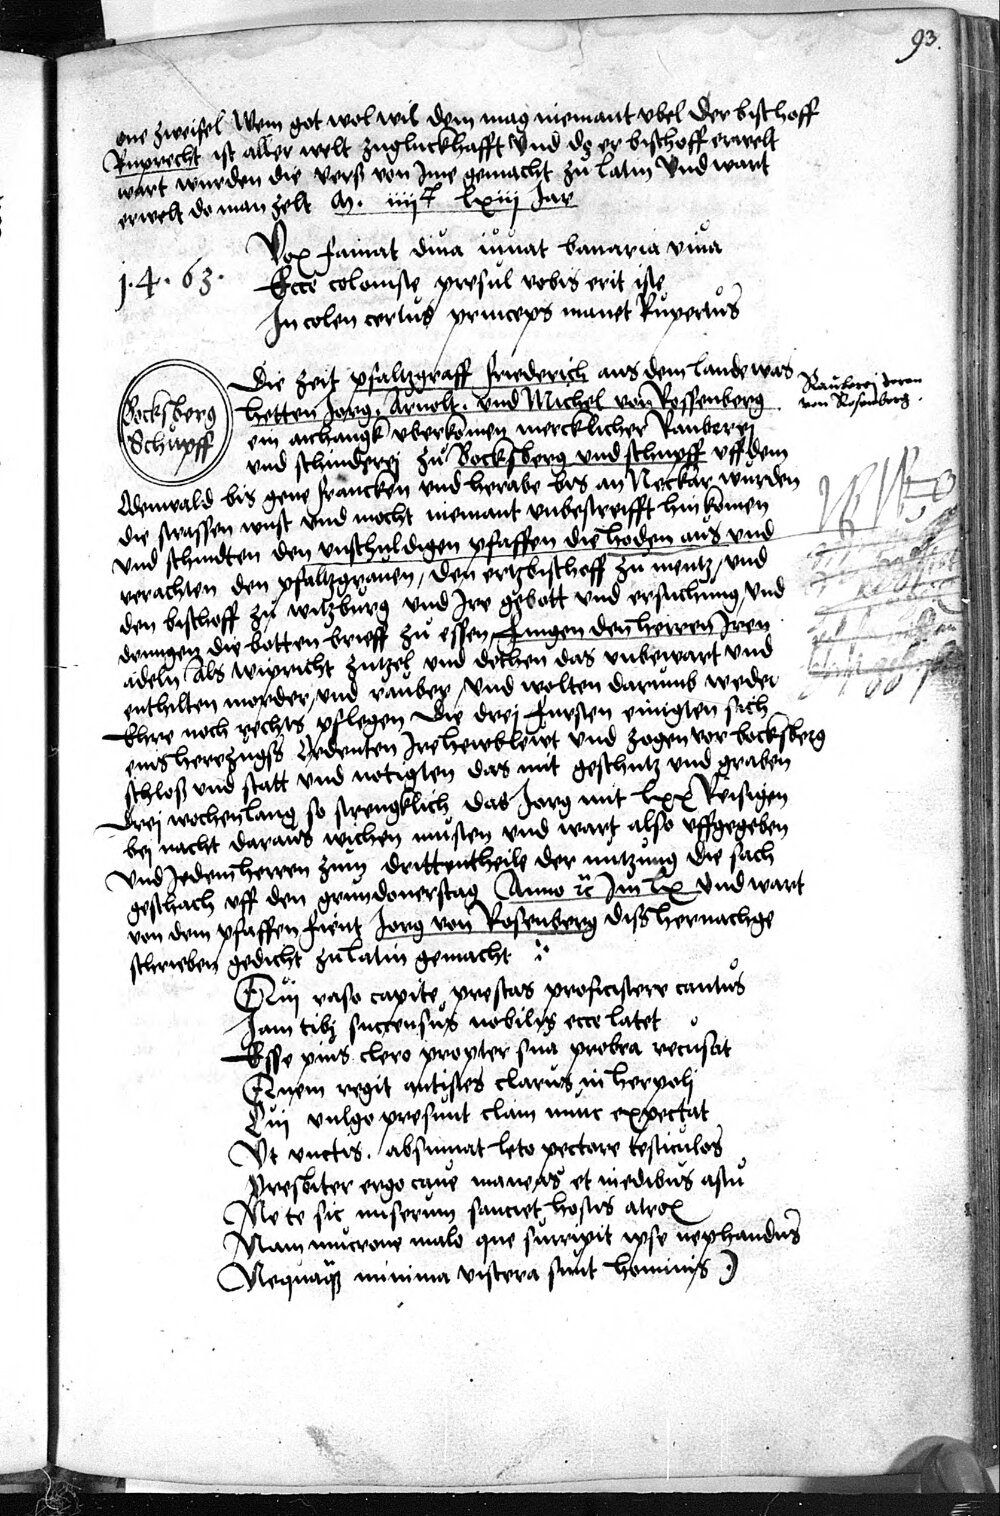 93.
one zweifel Wem got wol wil dem mag niemant vbel Der bischoff
Ruprecht ist aller welt zugluckhafft Vnd do er bischoff erwelt
wart wurden die verß von Ime gemacht zu latin Vnd wart
erwelt do man zelt M. iiijc lxiij Jar
Vox fainat diua iuuat bauaria viua
1.4.63. Ecce coloniste presul vobis erit iste
In colen certus princeps manet Rupertus
Bocksberg
Schupff
Die Zeit pfaltzgraff friederich aus dem lande was
Rauberei deren
von Rosenberg.
hetten Jorg, Arnolt, vnd Michel von Rossenberg
ein anhangk vberkomen mercklicher Rauberei
vnd schinderei zu Bocksberg vnd schupff vff dem
Odenwald bis gene francken vnd herabe bis an Neckar wurden
die strassen wust vnd mocht niemant vnbestreifft hinkomen
vnd schindten den vnschuldigen pfaffen die hoden aus vnd
verachten den pfaltzgrauen, den ertzbischoff zu mentz, vnd
den bischoff zu witzburg vnd Ire gebott vnd ersuchung, vnd
drungen die botten brieff zu essen, fingen den herren Iren
adeln Als wiprecht zutzel vnd dethen das vnbewart vnd
enthilten morder, vnd rauber, vnd wolten darumb weder
Ehre noch rechts pflegen Die drei fursten einigten sich
eins herezugß Ordenten Ire hewblewt vnd zogen vor bocksberg
schloß vnd statt vnd notigten das mit geschutz vnd graben
Drei wochen lang so strengklich das Jorg mit lxx Reisigen
bei nacht daraus wichen musten vnd wart also vffgegeben
Vnd Jedem herren zum drittentheile der nutzung die sach
geschach vff den grundonerstag Anno &c Im lx Vnd wart
von dem pfaffen fient Jorg von Rosenberg diß hernachge
schrieben gedicht zu latin gemacht
Qui raso capite prestas proficistere cantus
Jam tibi succensus nobilis ecce latet
Esse pius clero propter sua probra recusat
Quem regit antistes clarus in herpoli
Qui vulgo presunt clam nunc expectat
Vt vnctis. absumat leto pectore testiculos
Presbiter ergo caue maneas et in edibus astu
Ne te sic miserum sanciet hostis atrox
Nam mucrone malo que surripit ipse nephandus
Nequaquam minima viscera sunt hominis